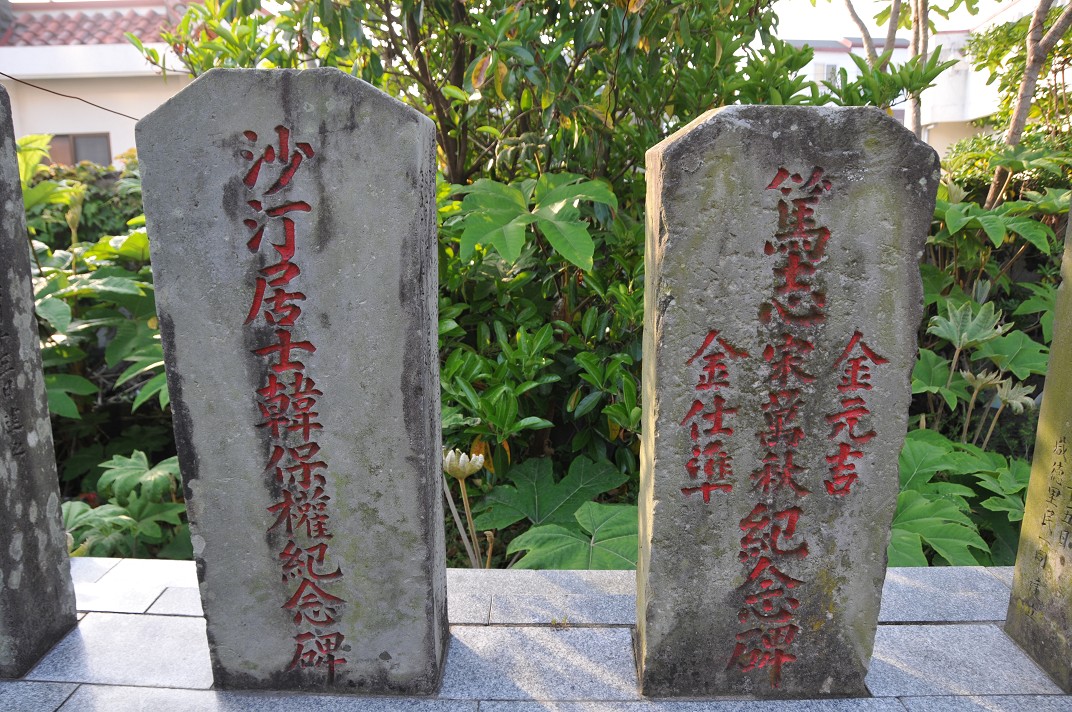 沙汀居士韓保權紀念碑
金元吉
篤志宋萬秋紀念碑
金仕準